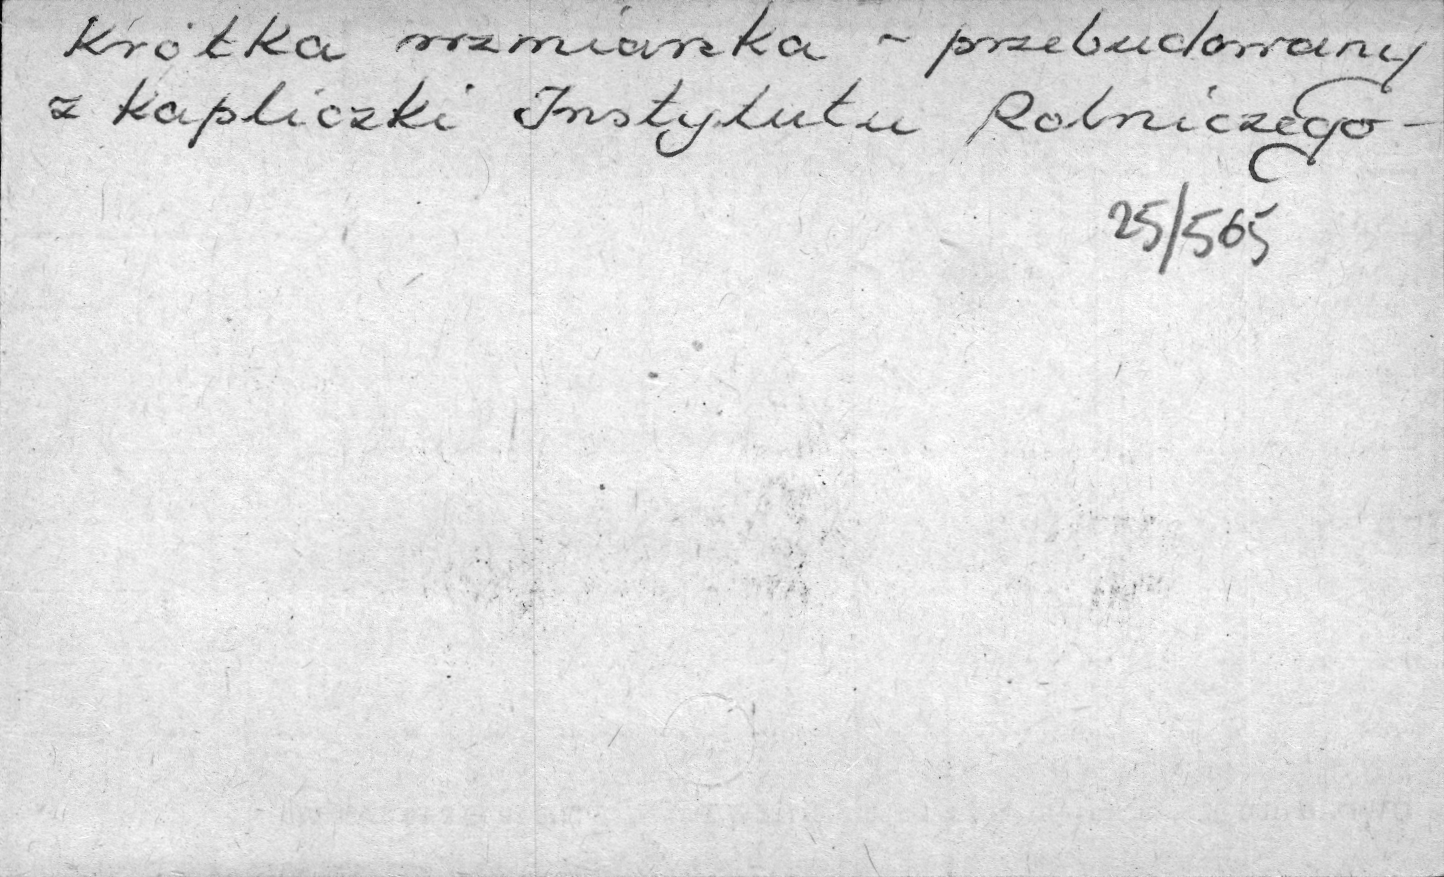 Krótka wzmianka - przebudowany
z kapliczki Instytutu Rolniczego -
25/565